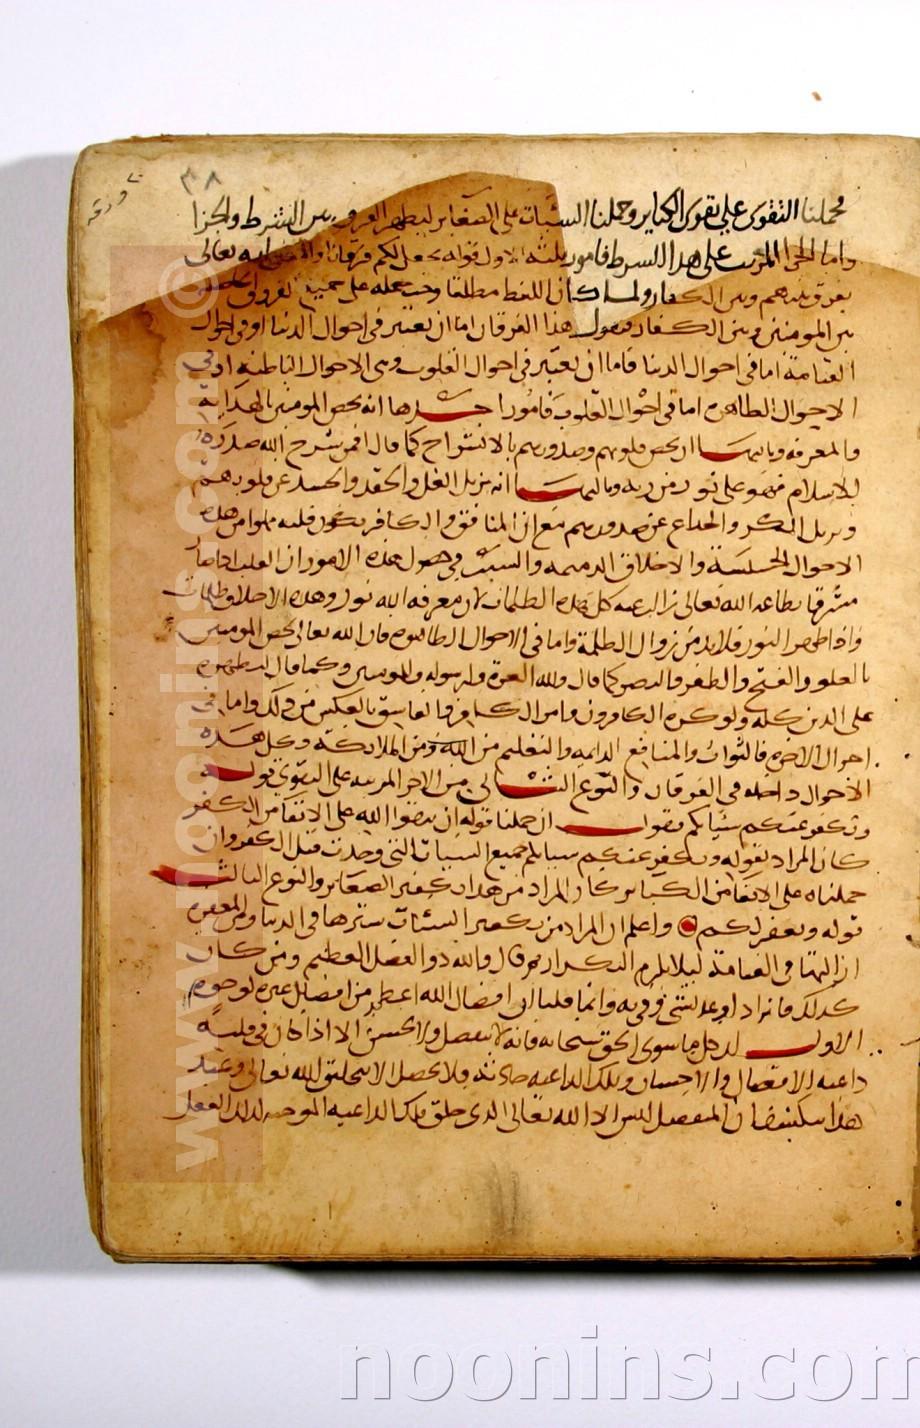 ٣٨
٢٠ ورقه
فحملنا التقوى على تقوى الكباير وحملنا السيات على الصغاير ليظهر الفرق بين الشرط والجزا
واما الجزا المرتب على هذا الشرط فامور ثلثه الاول قوله يجعل لكم فرقانا والمعنى انه تعالى
يفرق بينهم وبين الكفار ولما كان اللفظ مطلقا وجب حمله على جميع الفروق الحاصلة
بين المومنين وبين الكفار فنقول هذا الفرقان اما ان يعتبر في احوال الدنيا او في احوال
القيامة اما في احوال الدنيا فاما ان يعتبر في احوال القلوب وهي الاحوال الباطنه او في
الاحوال الظاهره اما في احوال القلوب فامور احدها انه يخص المومنين بالهداية
والمعرفه وثانيها ان يخص قلوبهم وصدورهم بالانشراح كما قال افمن شرح الله صدره
للاسلام فهو على نور من ربه وثالثها انه يزيل الغل والحقد والحسد عن قلوبهم
ويزيل المكر والخداع عن صدورهم مع ان المنافق والكافر يكون قلبه مملوا من هذه
الاحوال الخسيسة والاخلاق الذميمه والسبب في حصول هذه الامور ان القلب اذا صار
مشرقا بطاعه الله تعالى زالت عنه كل هذه الظلمات لان معرفه الله نور وهذه الاخلاق ظلمات
واذا ظهر النور فلا بد من زوال الظلمة واما في الاحوال الظاهره فان الله تعالى يخص المومنين
بالعلو والفتح والظفر والنصر كما قال ولله العزة ولرسوله وللمومنين وكما قال ليظهره
على الدين كله ولو كره الكافرون وامر الكافر والفاسق بالعكس من ذلك واما في
احوال الاخره فالثواب والمنافع الدايمه والتعظيم من الله ومن الملائكة وكل هذه
الاحوال داخله في الفرقان والنوع الثاني من الاجزا المرتبه على التقوى قوله
ويكفر عنكم سياتكم فنقول ان حملنا قوله ان تتقوا الله على الاتقا من الكفر
كان المراد بقوله ويكفر عنكم سياتكم جميع السيات التي وجدت قبل الكفر وان
حملناه على الاتقا من الكباير كان المراد من هذا تكفير الصغاير والنوع الثالث
قوله ويغفر لكم واعلم ان المراد من تكفير السيئات سترها في الدنيا ومن المغفره
ازالتها في القيامة ليلا يلزم التكرار ثم قال والله ذو الفضل العظيم ومن كان
كذلك فانه اذا وعد بشي وفي به وانما قلنا ان افضال الله اعظم من افضال غيره لوجوه
الاول ان كل ما سوى الحق سبحانه فانه لا يتفضل ولا يحسن الا اذا كان في قلبه
داعيه الافضال والاحسان وتلك الداعيه حادثه فلا تحصل الا بتخليق الله تعالى وعند
هذا ينكشف ان المتفضل ليس الا الله تعالى الذي خلق تلك الداعيه الموجبه لذلك الفعل
© www.noonins.com
noonins.com